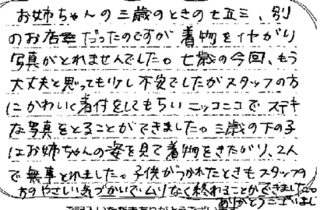 お姉ちゃんの三歳のときの七五三、別
のお店だったのですが着物をイヤがり
写真がとれませんでした。七歳の今回、もう
大丈夫と思っても少し不安でしたがスタッフの方
にかわいく着付をしてもらいニッコニコでステキ
な写真をとることができました。三歳の下の子
はお姉ちゃんの姿を見て着物をきたがり、2人
で無事とれました。子供がつかれたときもスタッフの
方のやさしい気づかいでムリなく終れることができました。
ありがとうございまし